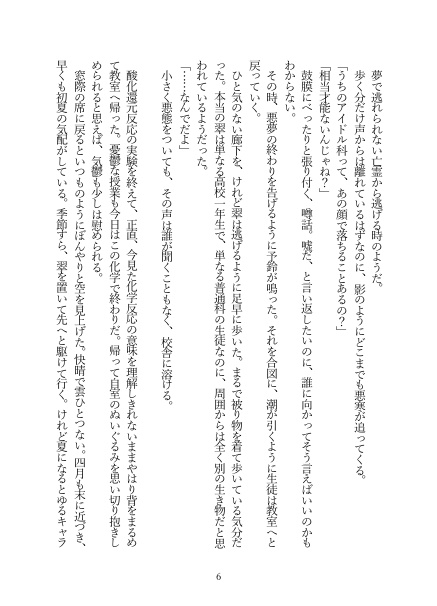 夢で逃れられない亡霊から逃げる時のようだ。
歩く分だけ声からは離れているはずなのに、影のようにどこまでも悪寒が追ってくる。
「うちのアイドル科って、あの顔で落ちることあるの?」
「相当才能ないんじゃね?」
鼓膜にべったりと張り付く、噂話。嘘だ、と言い返したいのに、誰に向かってそう言えばいいのかも
わからない。
その時、悪夢の終わりを告げるように予鈴が鳴った。それを合図に、潮が引くように生徒は教室へと
戻っていく。
ひと気のない廊下を、けれど翠は逃げるように足早に歩いた。まるで被り物を着て歩いている気分だ
った。本当の翠は単なる高校一年生で、単なる普通科の生徒なのに、周囲からは全く別の生き物だと思
われているようだった。
「……なんでだよ」
小さく悪態をついても、その声は誰が聞くこともなく、校舎に溶ける。
酸化還元反応の実験を終えて、正直、今見た化学反応の意味を理解しきれないままやはり背をまるめ
て教室へ帰った。憂鬱な授業も今日はこの化学で終わりだ。帰って自室のぬいぐるみを思い切り抱きし
められると思えば、気鬱も少しは慰められる。
窓際の席に戻るといつものようにぼんやりと空を見上げた。快晴で雲ひとつない。四月も末に近づき、
早くも初夏の気配がしている。季節すら、翠を置いて先へと駆けて行く。けれど夏になるとゆるキャラ
6